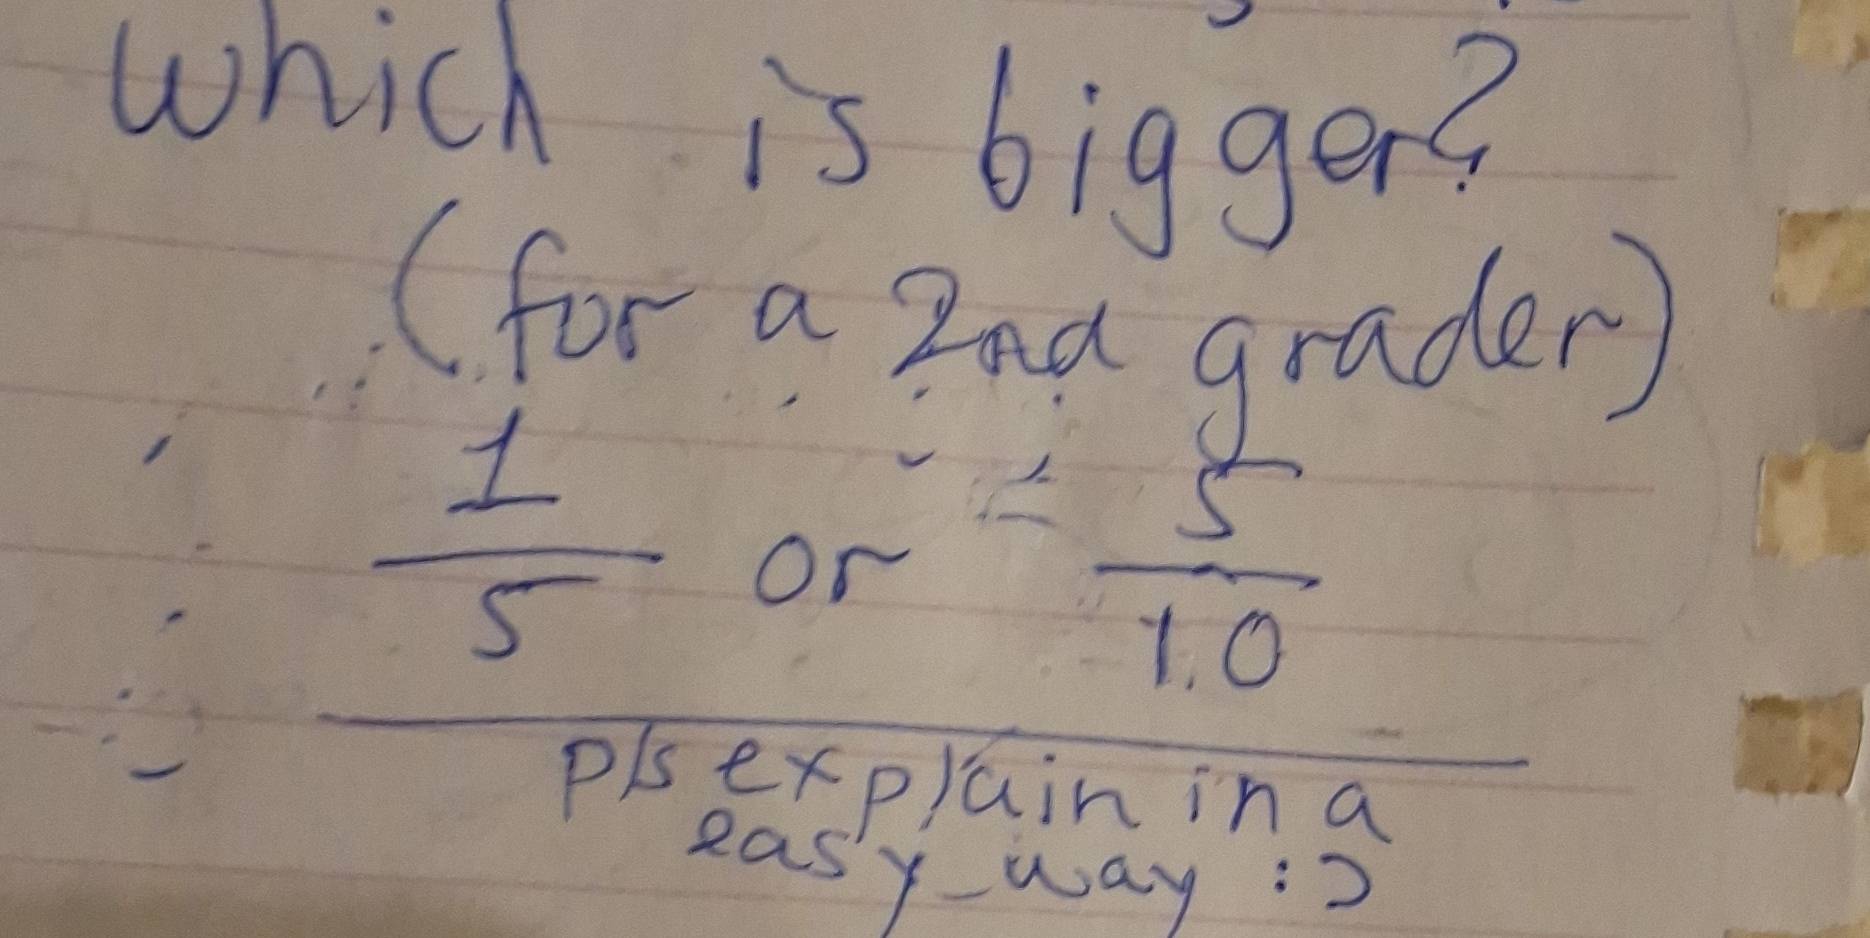 which is bigger?
(for a 2nd grader)
1/5 or 5/10
pls explain in a
easy way :)